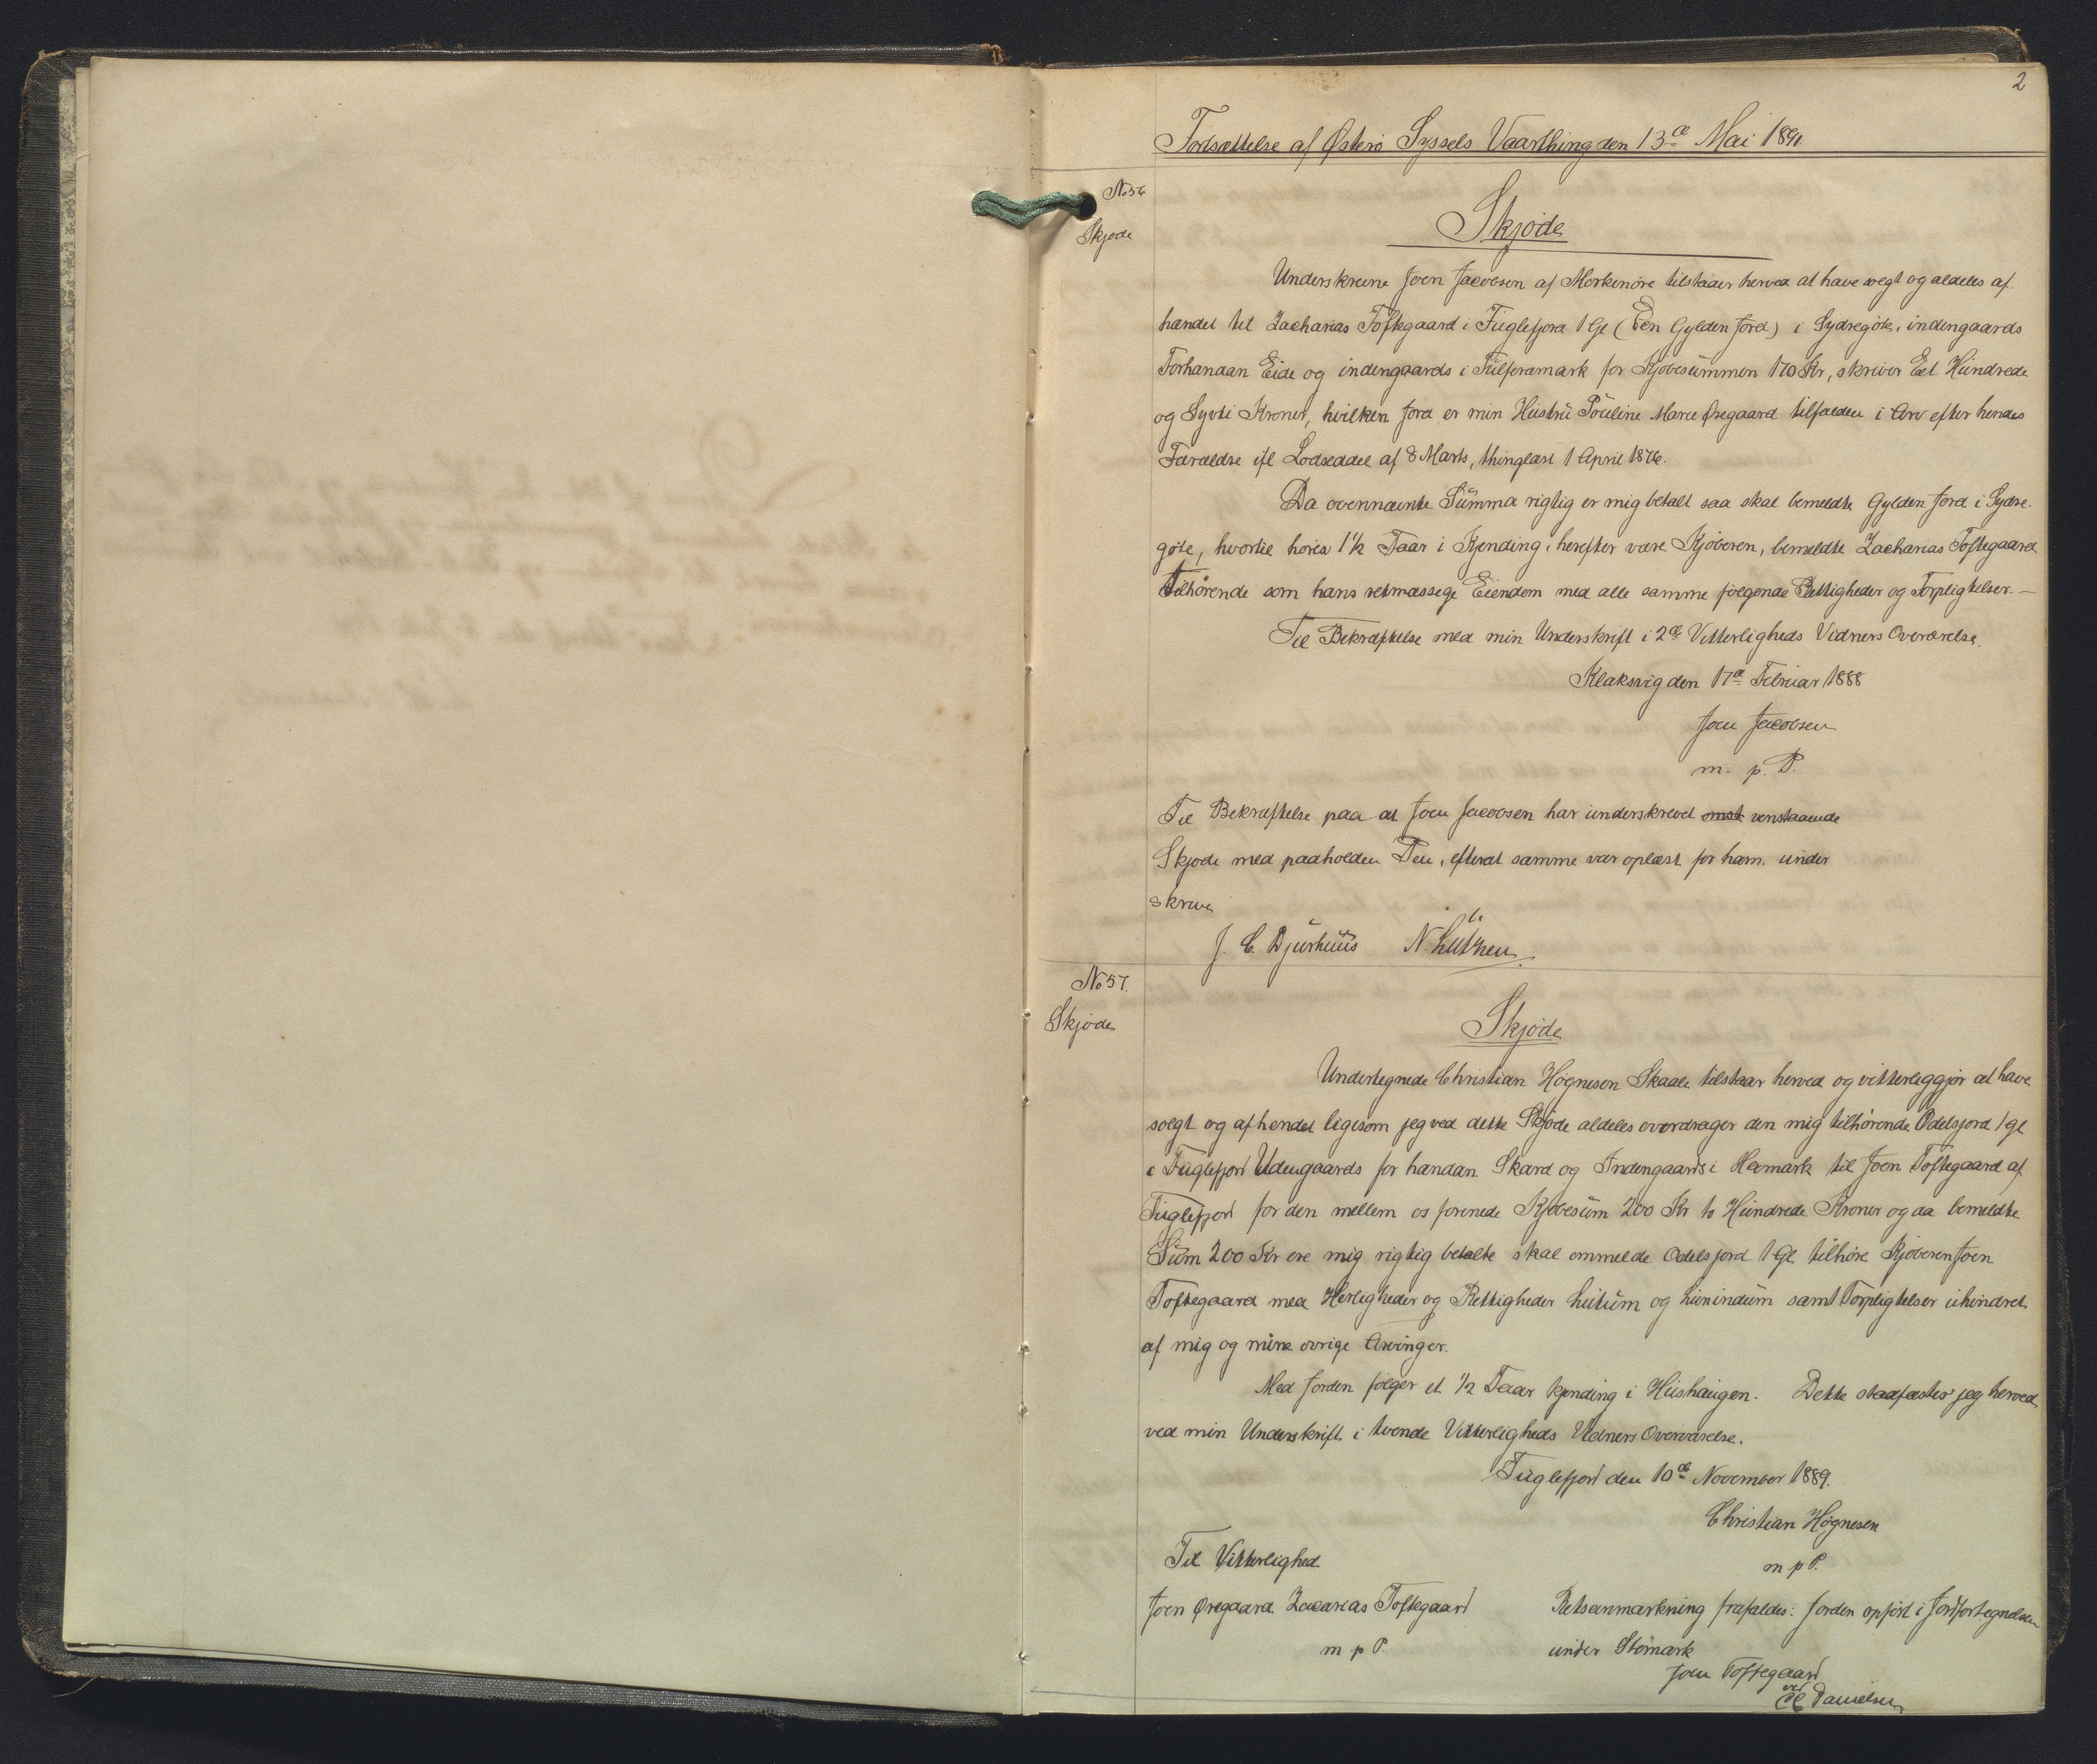 2
Fortsættelse af Østerø Syssels Vaarthing den 13de Mai 1891.
No 56
Skjøde
Skjøde
Underskrevne Joen Jacobsen af Morkenøre tilstaaer herved at have solgt og aldeles af
hændet til Zacharias Toftegaard i Fuglefjord 1 Gl (Een Gylden Jord) i Sydregöte, indengaards
Forhandan Eide og indengaards i Fulferamark for Kjøbesummen 170 Kr, skriver Eet Hundrede
og Syvti Kroner, hvilken Jord er min Hustru Pouline Marie Øregaard tilfalden i Arv efter hendes
Forældre ifl Lodseddel af 8 Marts, thinglæst 1 April 1876.
Da ovennævnte Summa rigtig er mig betalt saa skal bemeldte Gylden Jord i Sydre-
göte, hvortil hører 1½ Faar i Kjending, herefter være Kjøberen, bemeldte Zacharias Toftegaard
Tilhörende som hans retmæssige Eiendom med alle samme følgende Rettigheder og Forpligtelser. —
Til Bekræftelse med min Underskrift i 2de Vitterligheds Vidners Overværelse.
Klaksvig den 17de Februar 1888
Joen Jacobsen
m. p. P.
Til Bekræftelse paa at Joen Jacobsen har underskrevet omst venstaaende
Skjøde med paaholden Pen, efterat samme var oplæst for ham. under
skrive
J. C. Djurhuus N. Lützen
No 57.
Skjøde
Skjøde
Undertegnede Christian Høgnesen Skaale tilstaar herved og vitterliggjør at have
solgt og afhendet ligesom jeg ved dette Skjøde aldeles overdrager den mig tilhørende Odelsjord 1 gl
i Fuglefjord Udengaards for handan Skard og Indengaards i Heimark til Joen Toftegaard af
Fuglefjord for den mellem os forenede Kjøbesum 200 Kr to Hundrede Kroner og da bemeldte
Sum 200 Kr ere mig rigtig betalte skal ommeldte Odelsjord 1 Gl tilhøre Kjøberen Joen
Toftegaard med Herligheder og Rettigheder lutum og lunindum samt Forpligtelser uhindret
af mig og mine øvrige Arvinger.
Med Jorden følger et ½ Faar kjending i Húshaugen. Dette stadfæster jeg herved
ved min Underskrift i tvende Vitterligheds Vidners Overværelse.
Fuglefjord den 10de November 1889.
Christian Høgnesen
m p P.
Til Vitterlighed
Joen Øregaard Zacarias Toftegaard
m p P.
Retsanmærkning frafaldes: Jorden opført i Jordfortegnelsen
under Stömark
Joen Toftegaard
ved
Danielsen